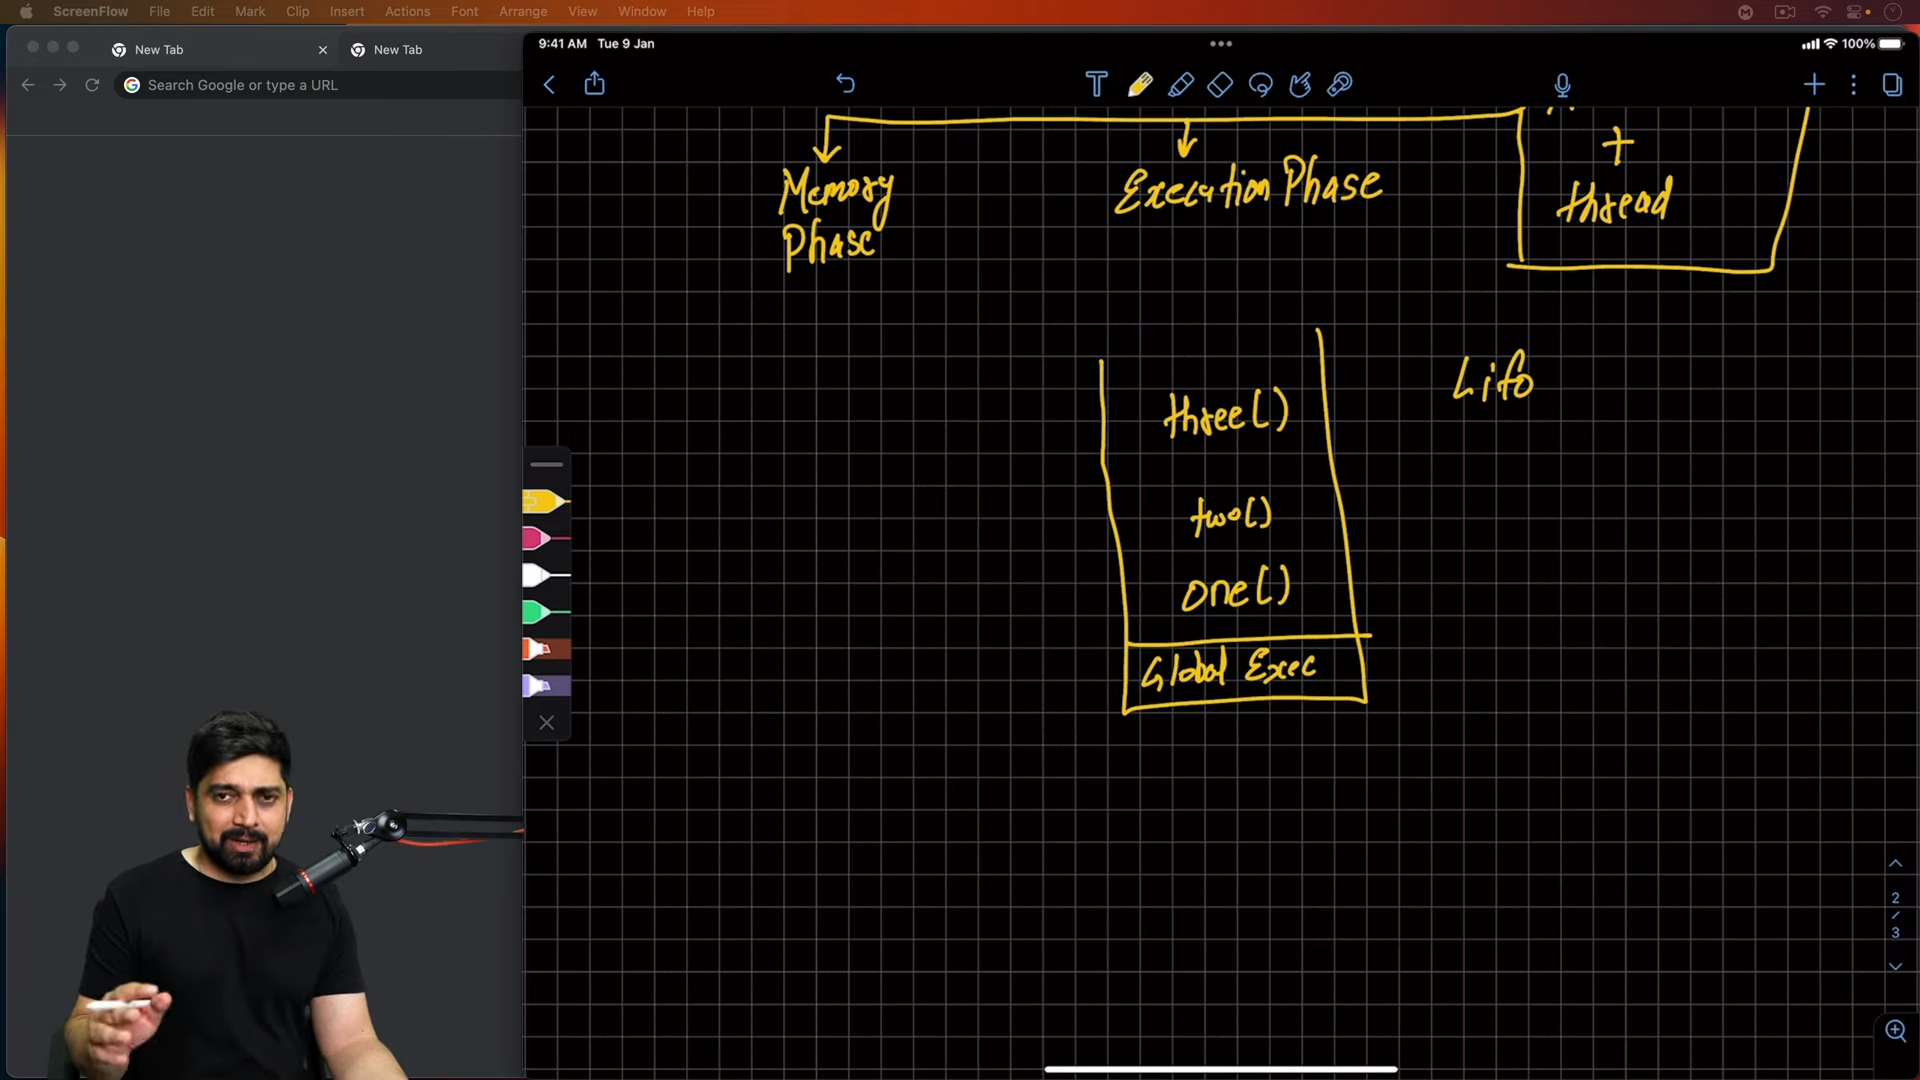 ScreenFlow File Edit Mark Clip Insert Actions Font Arrange View Window Help
New Tab
New Tab
Search Google or type a URL
9:41 AM Tue 9 Jan
100%
T
Memory
Phase
Execution Phase
+
thread
three()
two()
one()
Global Exec
Lifo
2
/
3